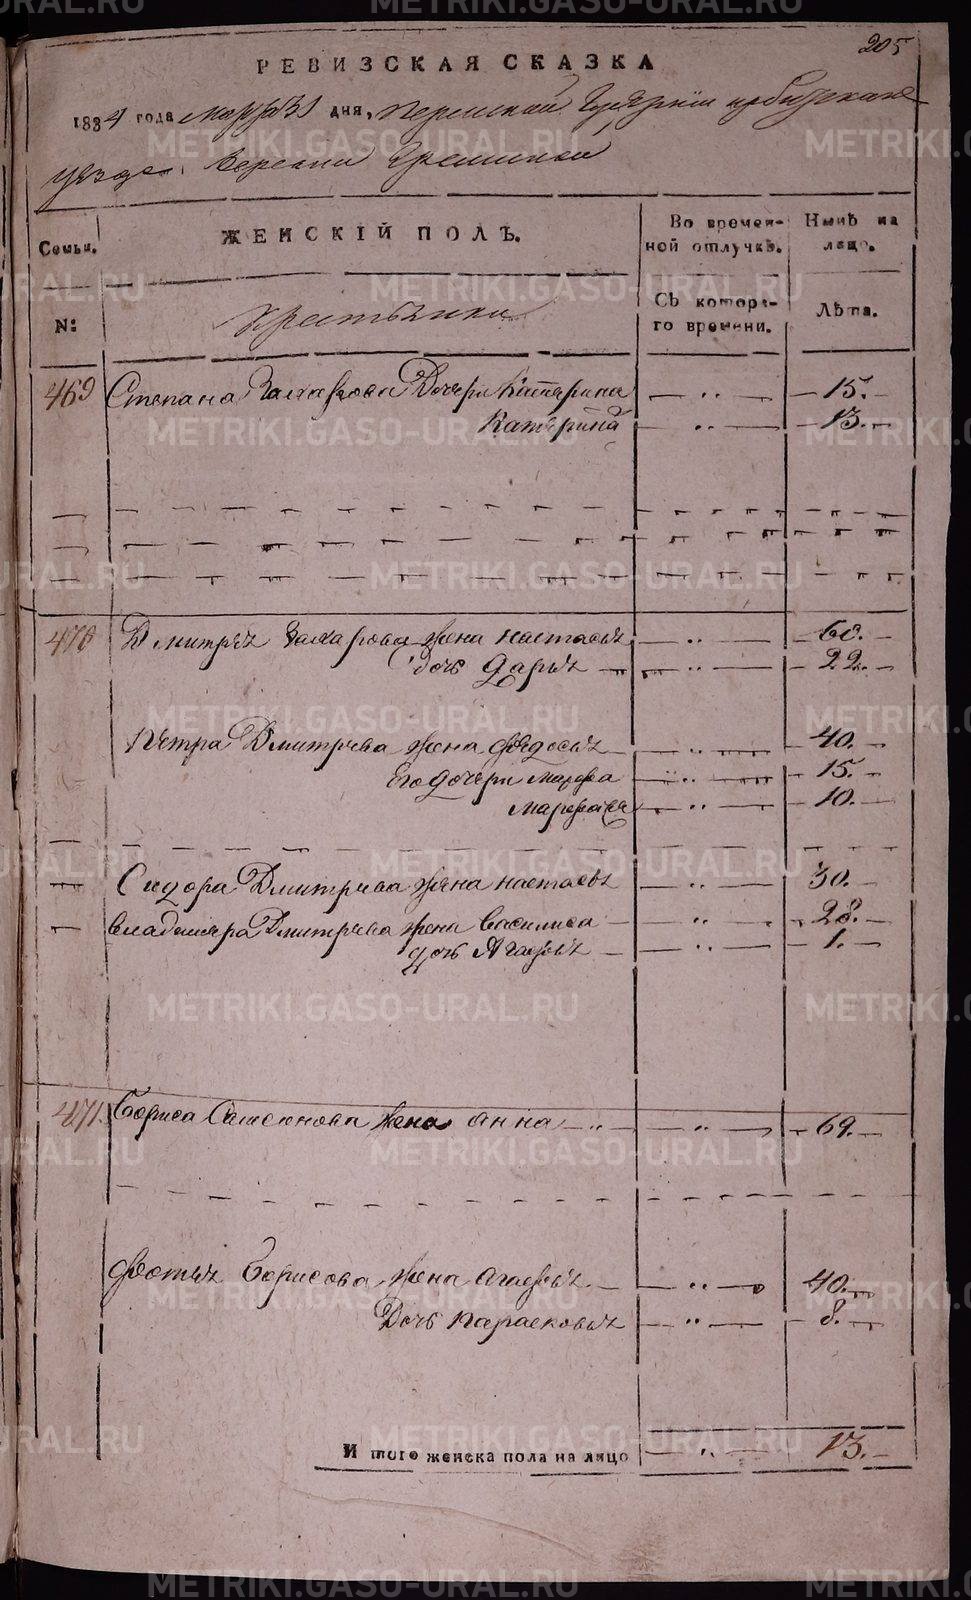 205
РЕВИЗСКАЯ СКАЗКА
1834 года марта 31 дня, Пермской Губернии Ирбитскаго
уезда, деревни
Семьи. ЖЕНСКІЙ ПОЛЪ. Во времен- Нынѣ на
ной отлучкѣ. лицо.
№: Крестьянки Съ которa- Лѣта.
го времени.
469 Степана Захарова Дочери Катерина 15.
Катерина 13.
470 Дмитрея Захарова жена Настасья 60.
дочь Дарья 22.
Петра Дмитриева жена Федосья 40.
Его дочери Марфа 15.
10.
Сидора Дмитриева жена Настасья 30.
Владимера Дмитриева жена Василиса 28.
дочь Агафья 1.
471. Бориса Самсонова жена Анна 69.
Фотея Борисова жена Агафья 40.
Дочь Парасковья 8.
И того женска пола на лицо 13.
METRIKI.GASO-URAL.RU